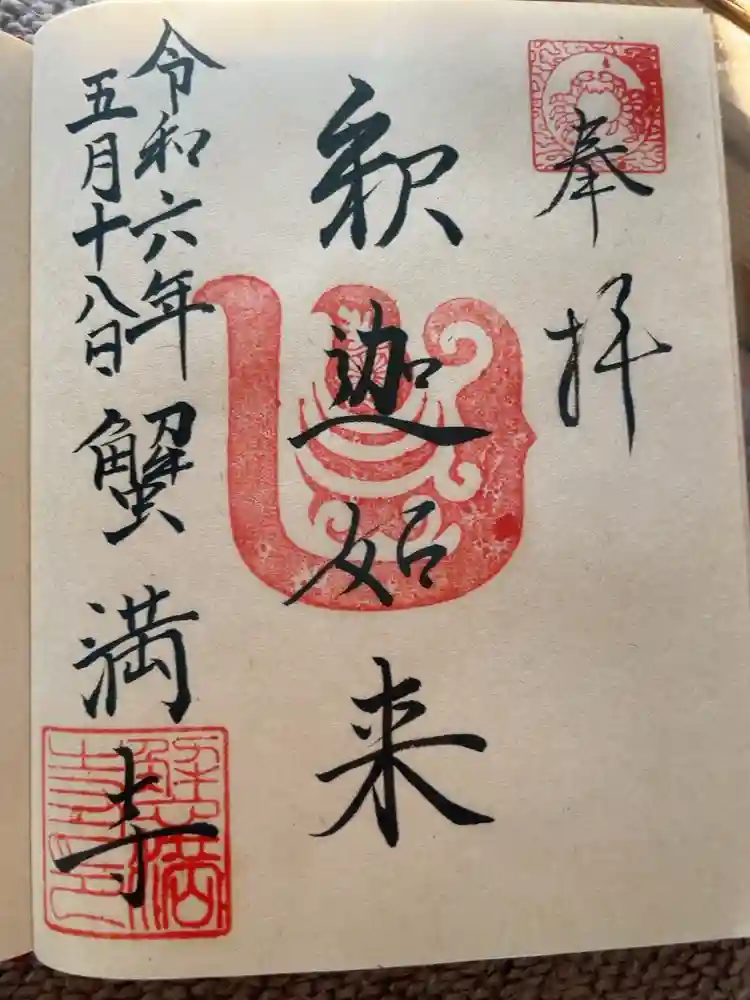 奉拝
釈迦如来
令和六年
五月十八日
蟹満寺